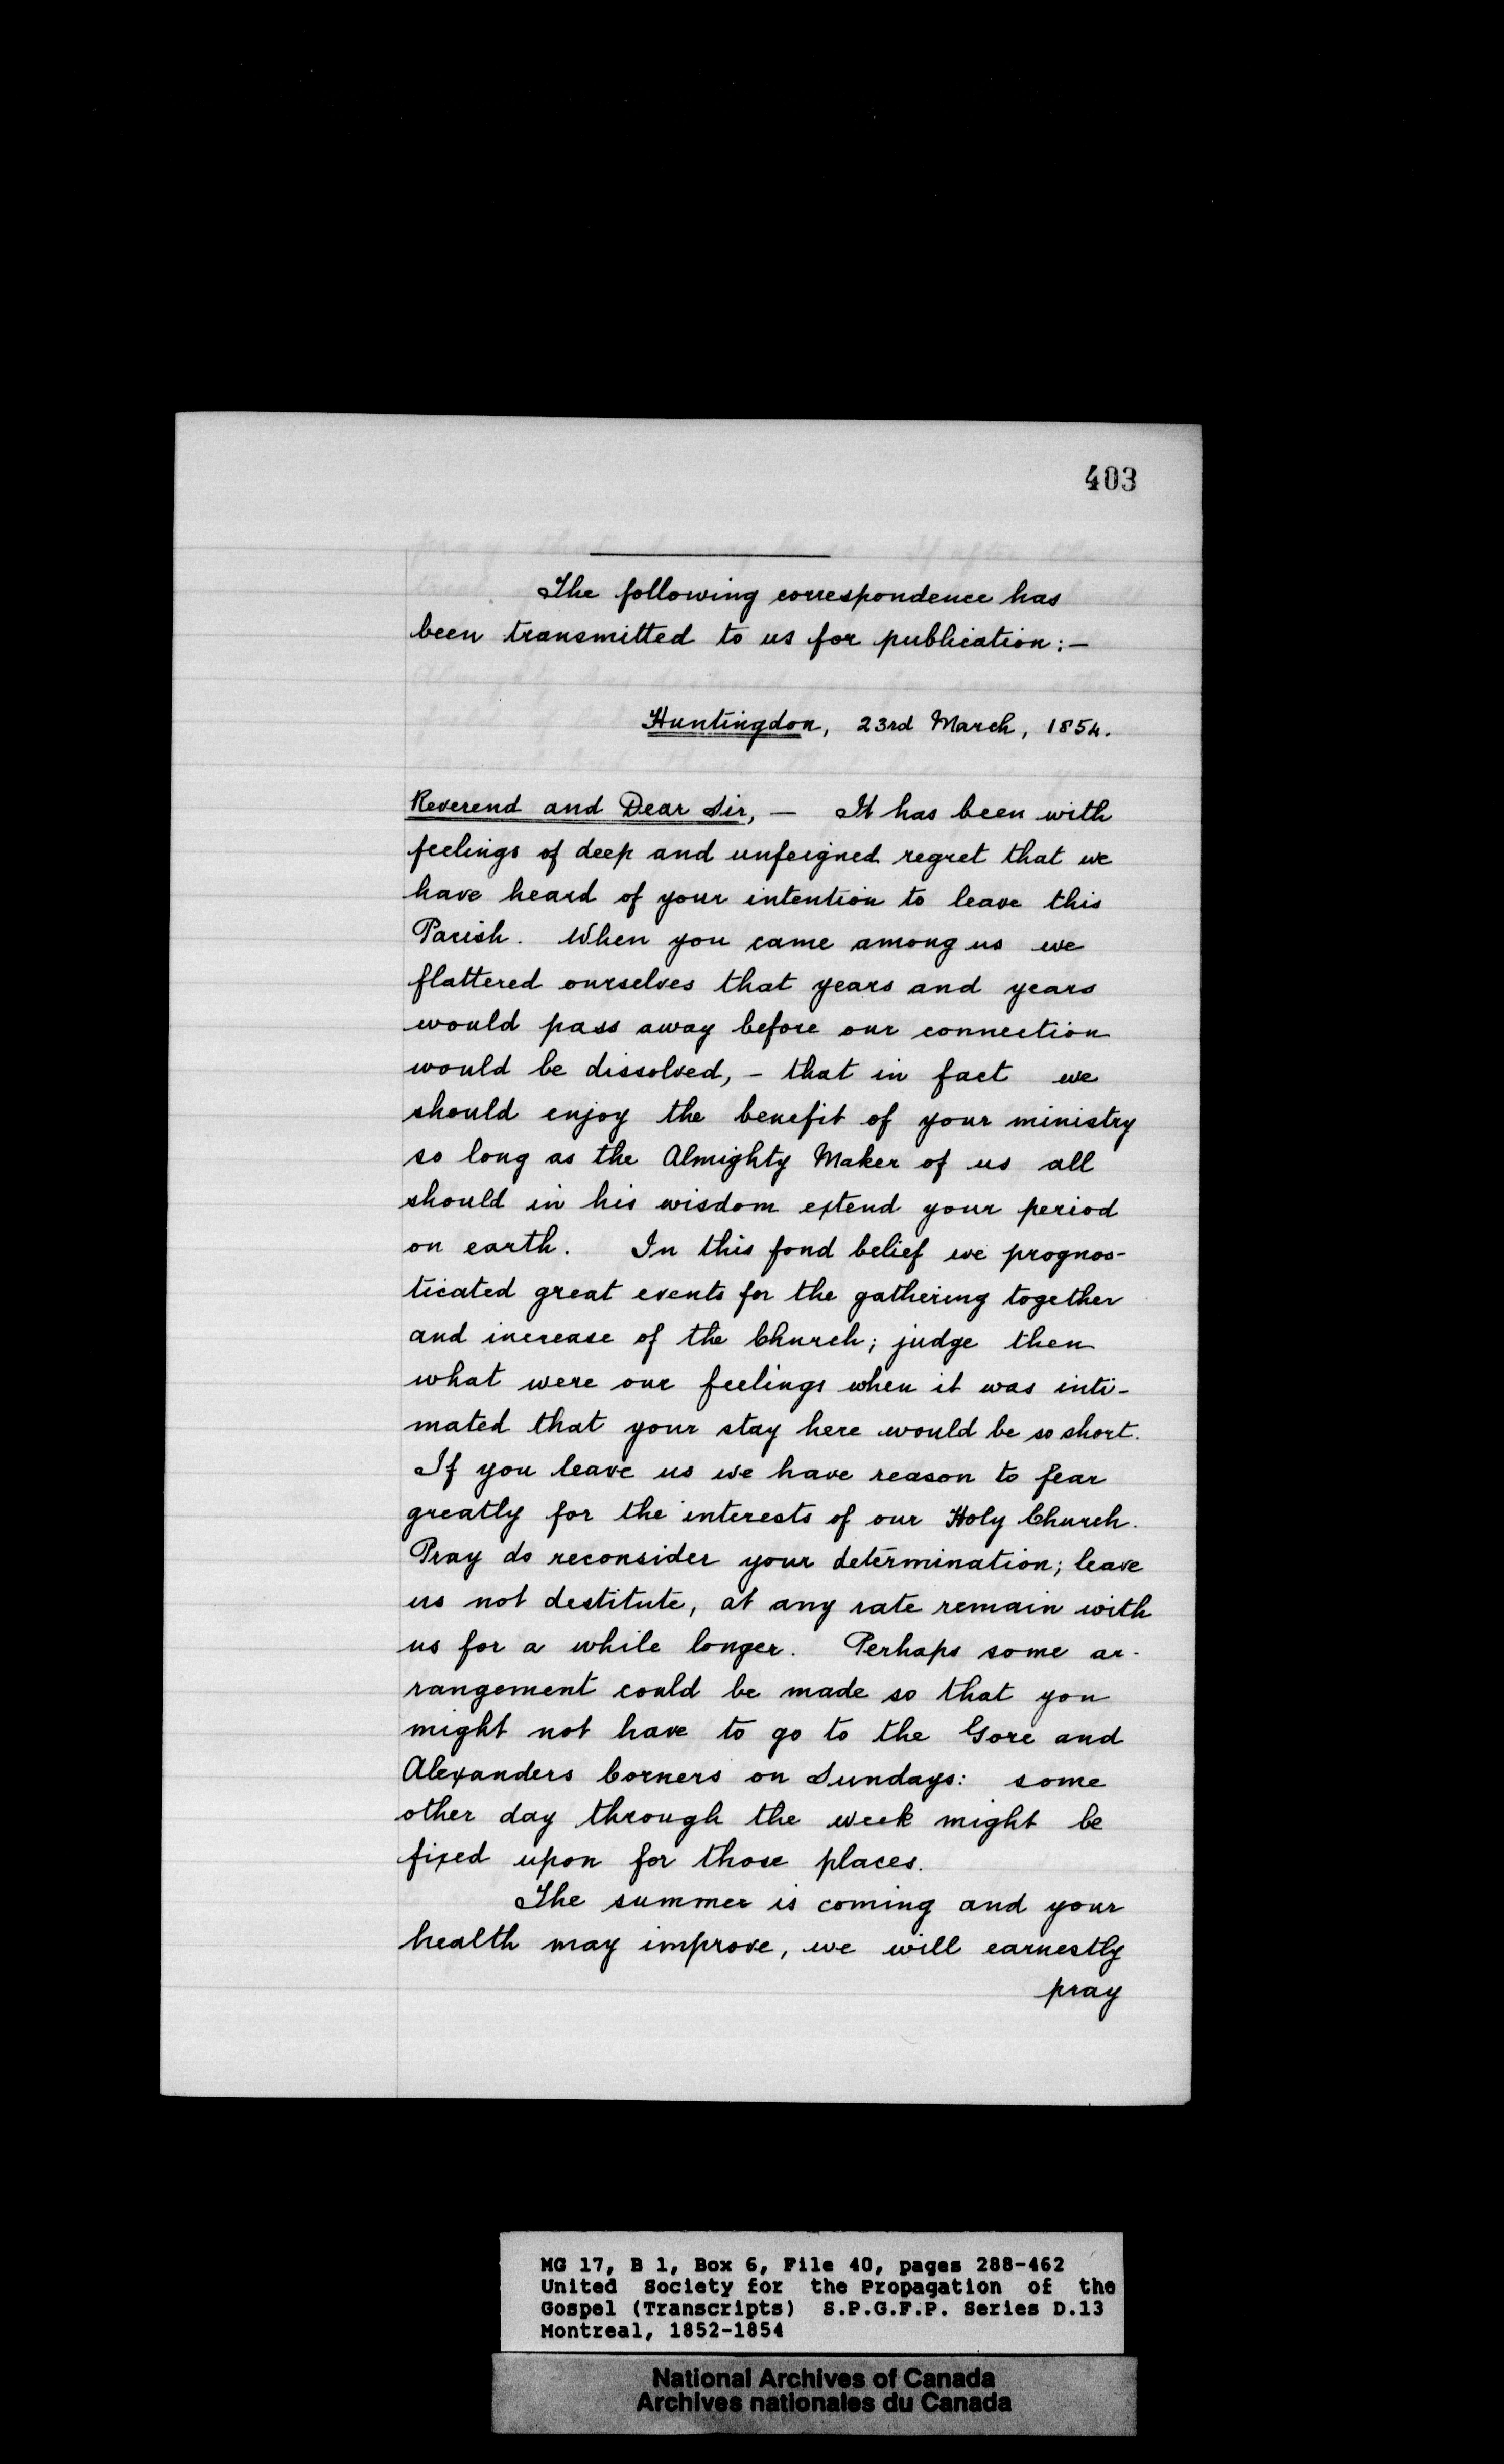 403
The following correspondence has
been transmitted to us for publication:—
Huntingdon, 23rd March, 1854.
Reverend and Dear Sir, — It has been with
feelings of deep and unfeigned regret that we
have heard of your intention to leave this
Parish. When you came among us we
flattered ourselves that years and years
would pass away before our connection
would be dissolved, - that in fact we
should enjoy the benefit of your ministry
so long as the Almighty Maker of us all
should in his wisdom extend your period
on earth. In this fond belief we prognos-
ticated great events for the gathering together
and increase of the Church; judge then
what were our feelings when it was inti-
mated that your stay here would be so short.
If you leave us we have reason to fear
greatly for the interests of our Holy Church.
Pray do reconsider your determination; leave
us not destitute, at any rate remain with
us for a while longer. Perhaps some ar-
rangement could be made so that you
might not have to go to the Gore and
Alexanders Corners on Sundays: some
other day through the week might be
fixed upon for those places.
The summer is coming and your
health may improve, we will earnestly
pray
MG 17, B 1, Box 6, File 40, pages 288-462
United Society for the Propagation of the
Gospel (Transcripts) S.P.G.F.P. Series D.13
Montreal, 1852-1854
National Archives of Canada
Archives nationales du Canada